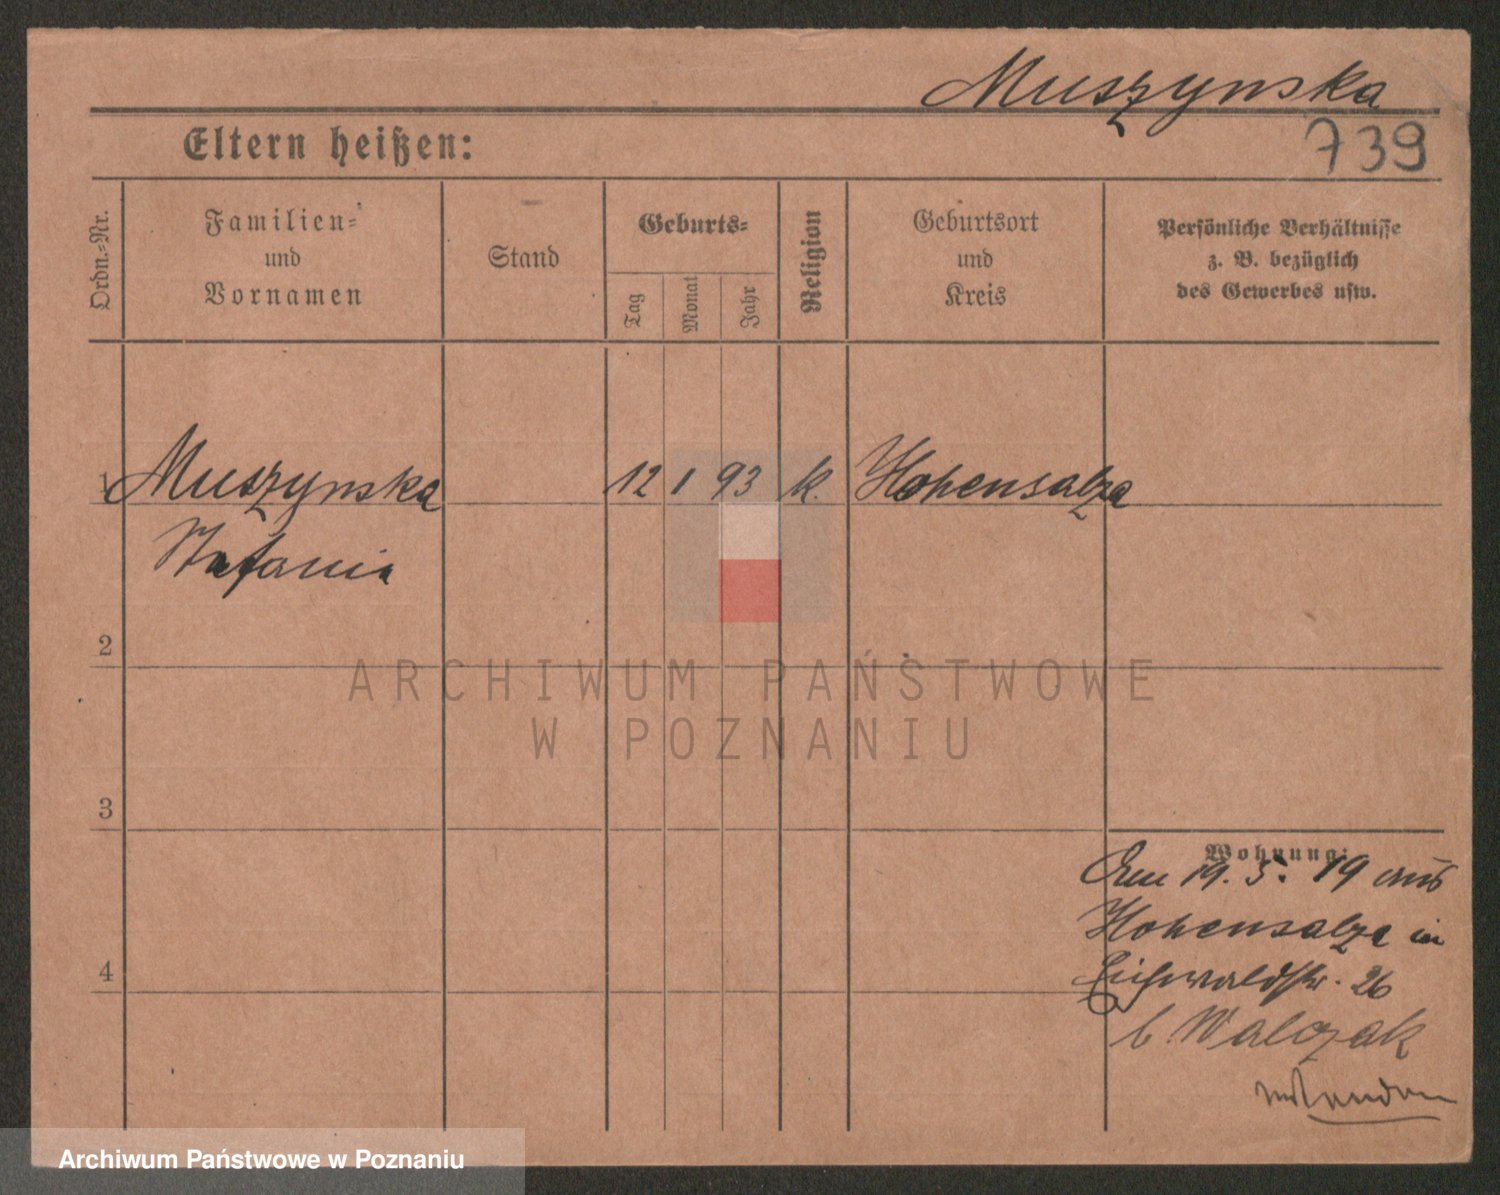 Muszynska
739
Eltern heißen:
Ordn.-Nr.
Familien-
und
Vornamen
Stand
Geburts-
Tag
Monat
Jahr
Religion
Geburtsort
und
Kreis
Persönliche Verhältnisse
z. B. bezüglich
des Gewerbes usw.
1 Muszynska 12 1 93 k. Hohensalza
Stefania
2
ARCHIWUM PAŃSTWOWE
W POZNANIU
3
Wohnung:
19. 5. 19 aus
Hohensalza in
4
Eichwaldstr. 26
b. Walczak
Archiwum Państwowe w Poznaniu